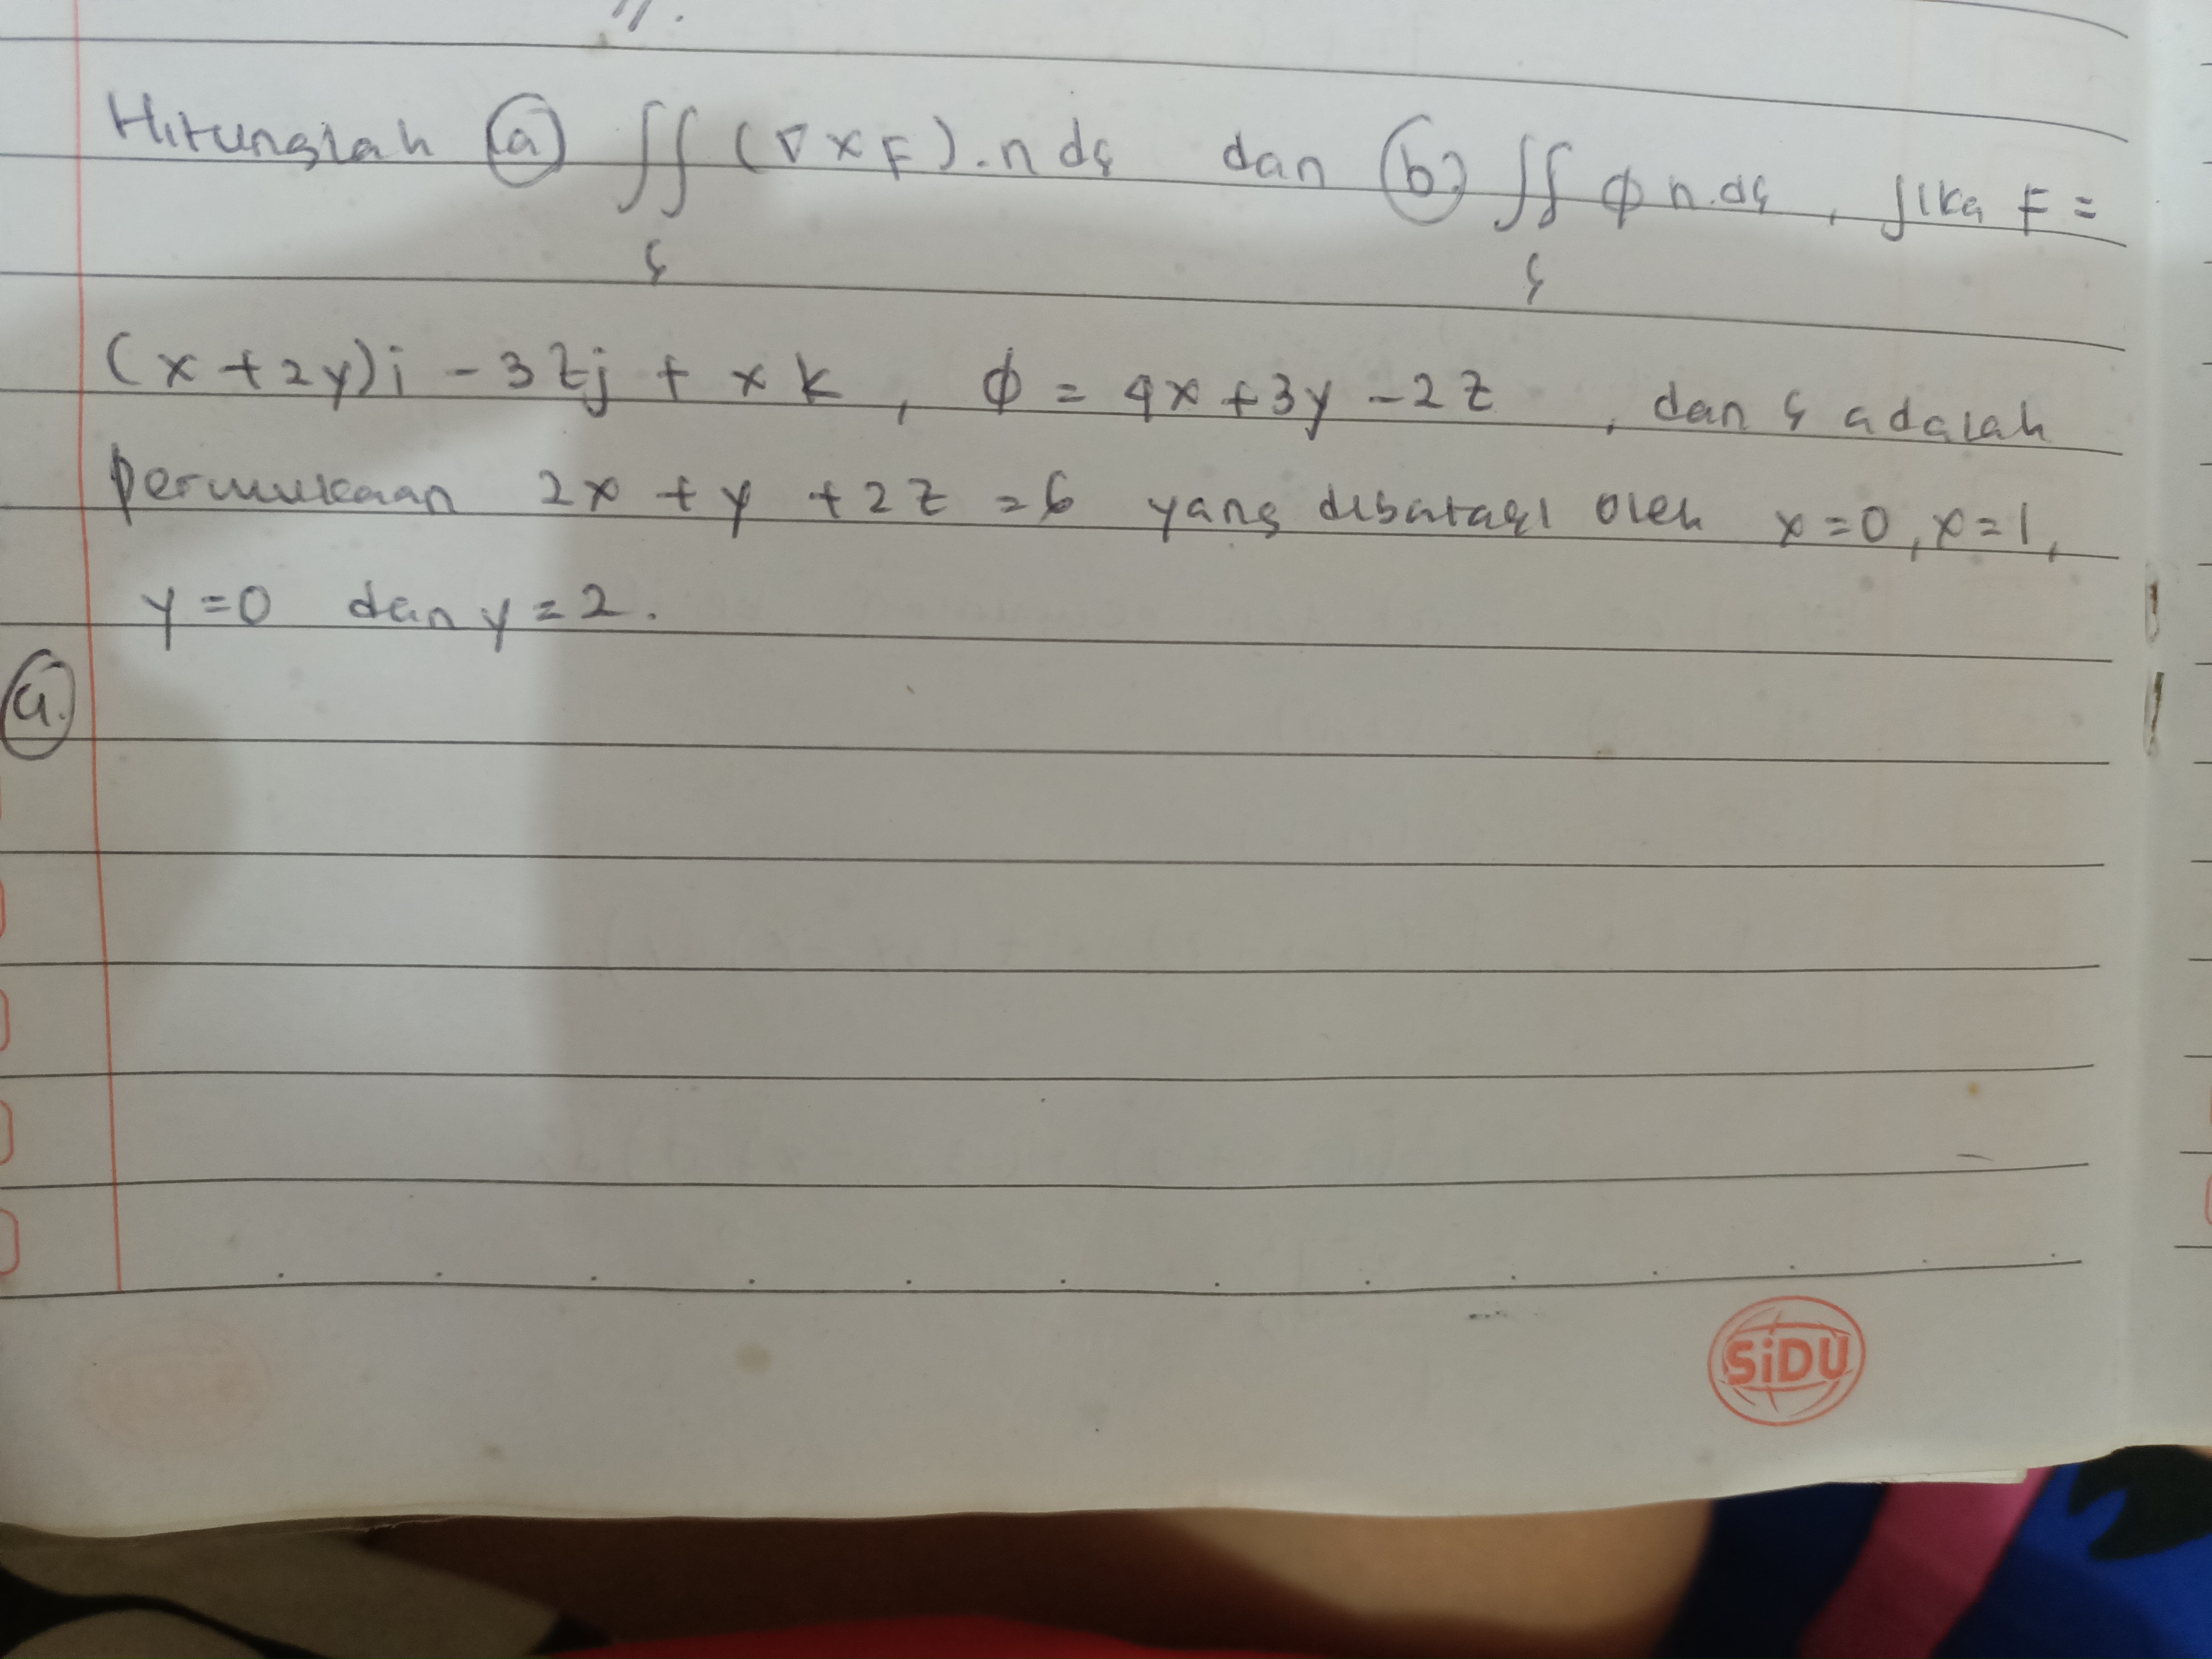 Hitunglah (a) ∬ (∇ × F) . n ds dan (b) ∬ ϕ n . ds , jika F =
s s
(x + 2y)i - 3zj + x k , ϕ = 4x + 3y - 2z , dan s adalah
permukaan 2x + y + 2z = 6 yang dibatasi oleh x = 0, x = 1,
y = 0 dan y = 2.
(a.)
SiDU